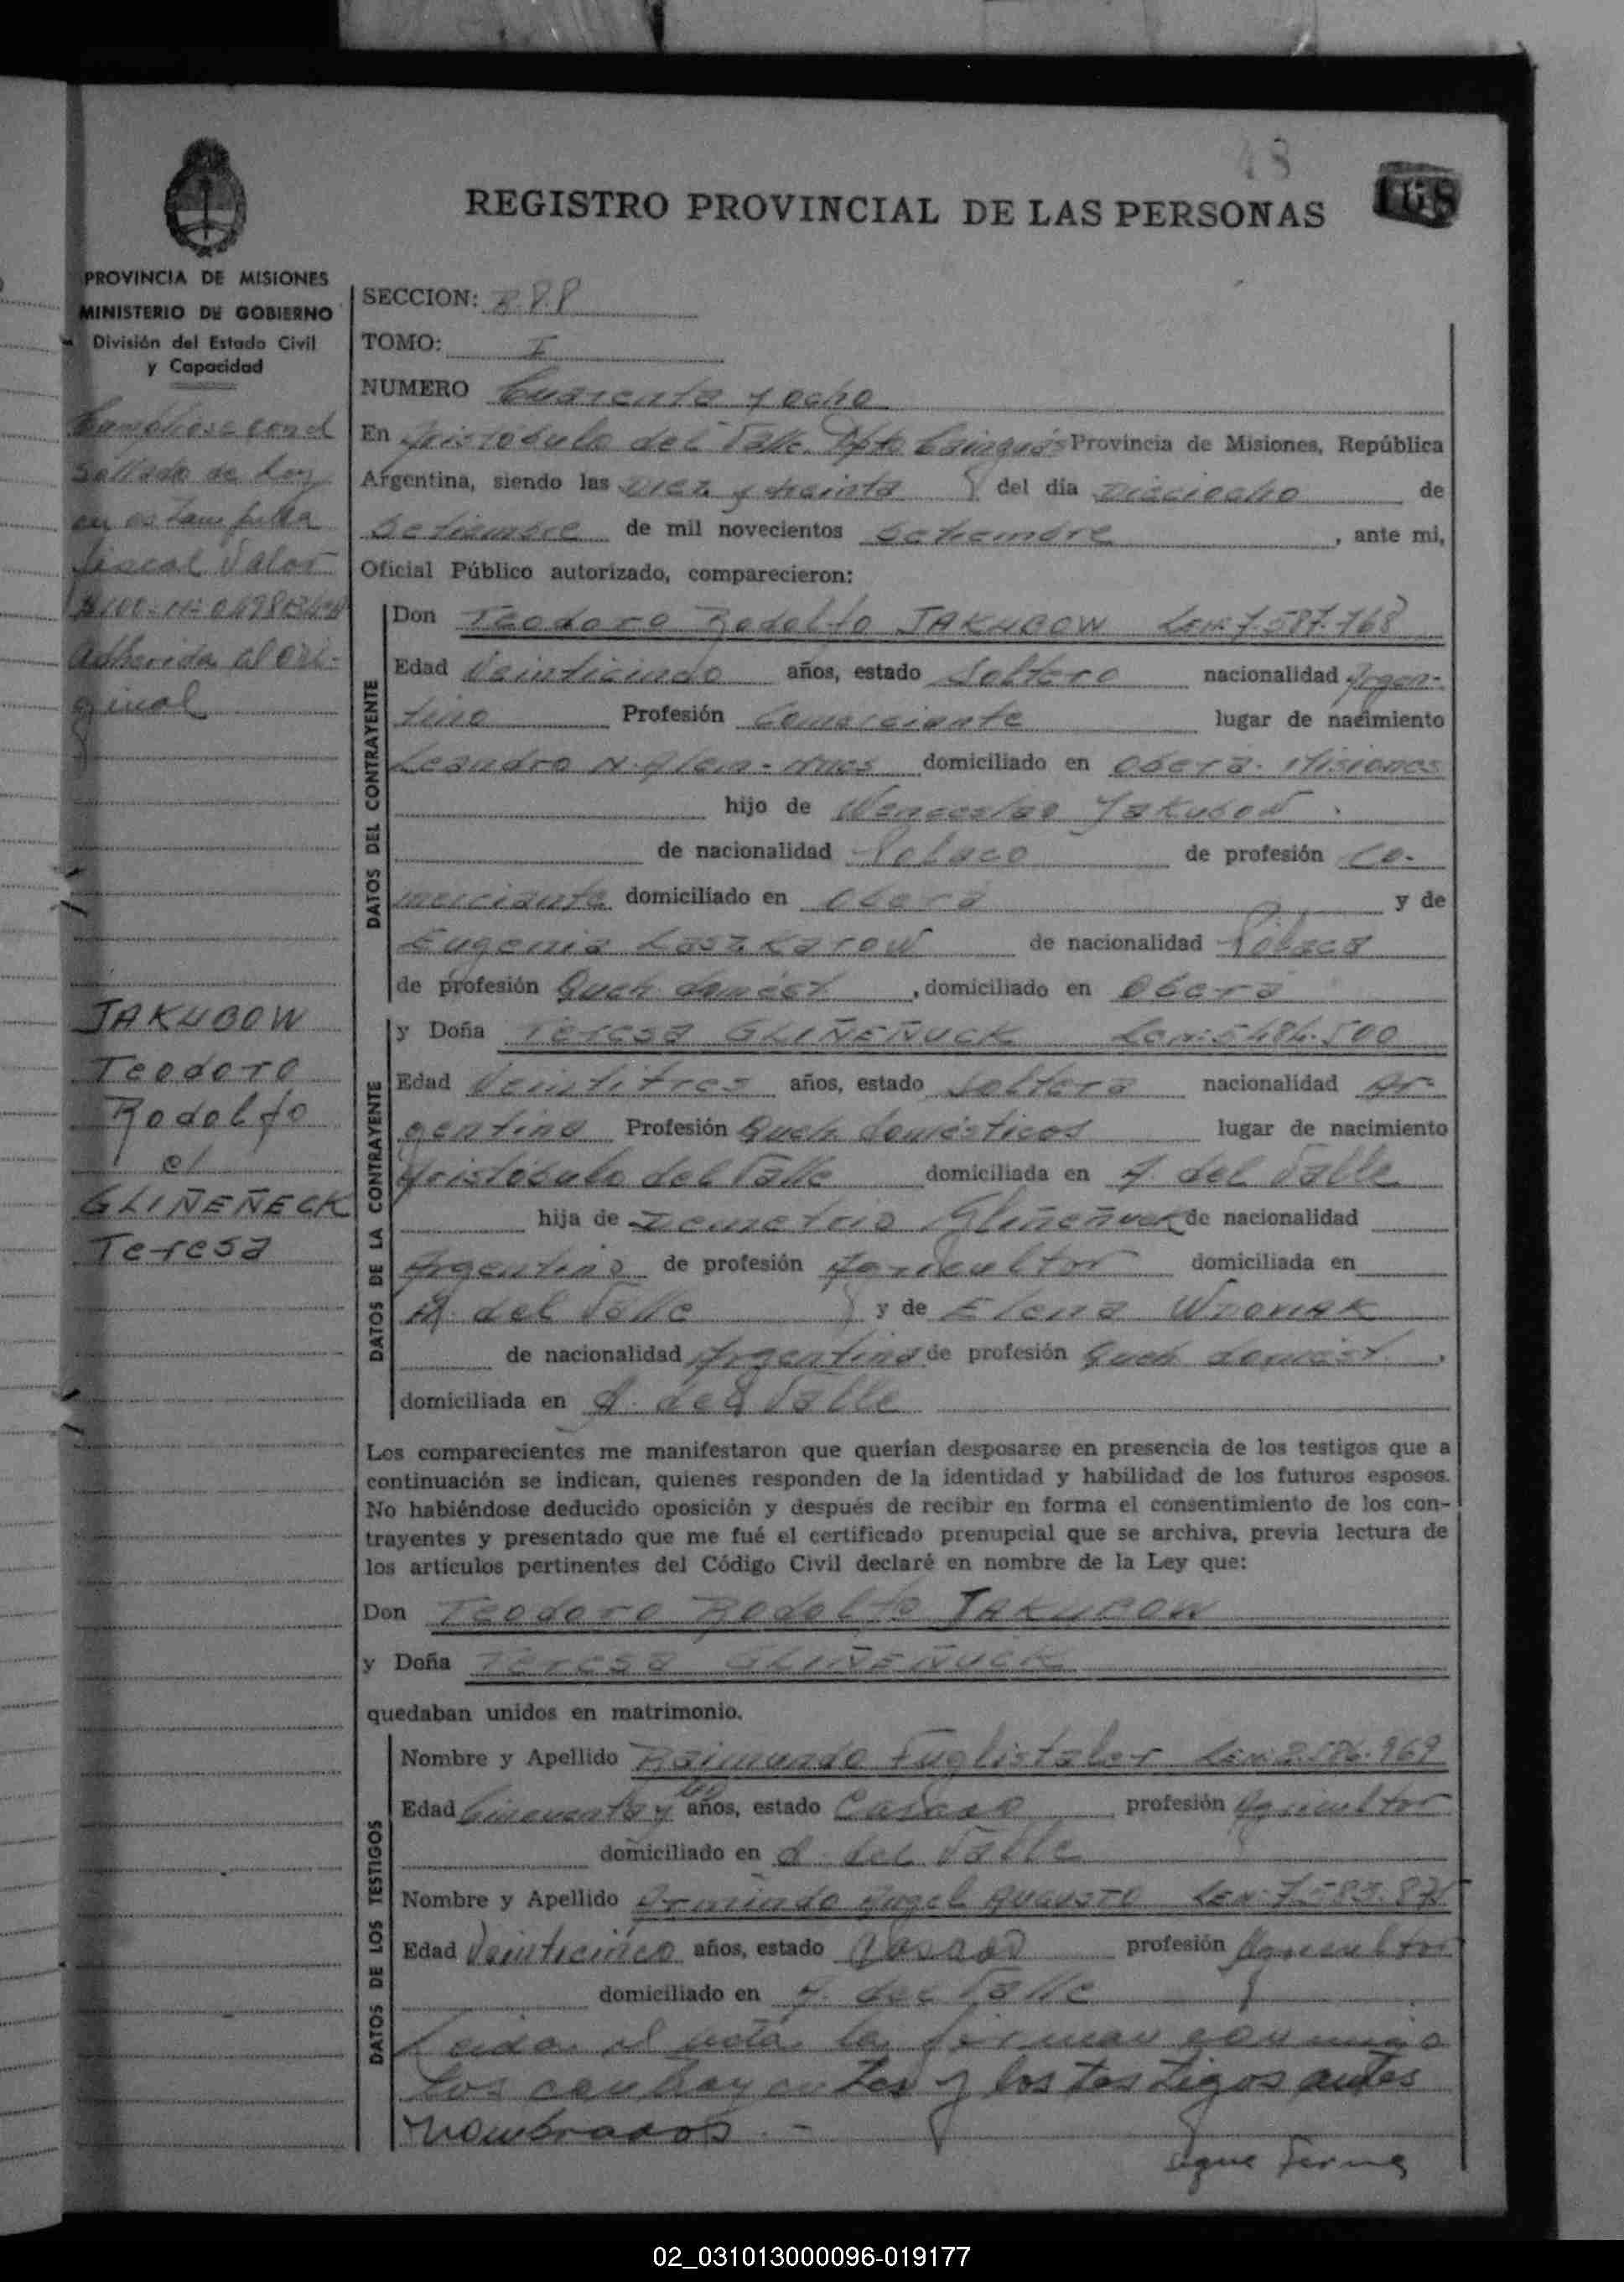 48
168
REGISTRO PROVINCIAL DE LAS PERSONAS
PROVINCIA DE MISIONES
MINISTERIO DE GOBIERNO
División del Estado Civil
y Capacidad
Sellado de Ley
fiscal Valor
adherida al ori-
ginal
JAKUBOW
Teodoro
Rodolfo
c/
GLIÑEÑECK
Teresa
SECCION: R.P.P
TOMO: I
NUMERO Cuarenta y ocho
En Aristóbulo del Valle. Dpto Cainguás Provincia de Misiones, República
Argentina, siendo las Diez y treinta del día Dieciocho de
Setiembre de mil novecientos Setiembre , ante mi,
Oficial Público autorizado, comparecieron:
DATOS DEL CONTRAYENTE
Don Teodoro Rodolfo JAKUBOW L.E.N: 7.587.768
Edad Veinticindo años, estado Soltero nacionalidad Argen-
tino Profesión Comerciante lugar de nacimiento
Leandro N. Alem - Mnes domiciliado en Oberá - Misiones
hijo de Wenceslao Jakubow
de nacionalidad Polaco de profesión Co-
merciante domiciliado en Oberá y de
Eugenia Laszkarow de nacionalidad Polaca
de profesión Queh. domést , domiciliado en Oberá
DATOS DE LA CONTRAYENTE
y Doña Teresa GLIÑEÑUCK L.C.N: 5.484.500
Edad Veintitres años, estado Soltera nacionalidad Ar-
gentina Profesión Queh. domésticos lugar de nacimiento
Aristóbulo del Valle domiciliada en A. del Valle
hija de Demetrio Gliñeñuck de nacionalidad
Argentino de profesión Agricultor domiciliada en
A. del Valle y de Elena WDOVIAK
de nacionalidad Argentina de profesión Queh domést. ,
domiciliada en A. del Valle
Los comparecientes me manifestaron que querían desposarse en presencia de los testigos que a
continuación se indican, quienes responden de la identidad y habilidad de los futuros esposos.
No habiéndose deducido oposición y después de recibir en forma el consentimiento de los con-
trayentes y presentado que me fué el certificado prenupcial que se archiva, previa lectura de
los artículos pertinentes del Código Civil declaré en nombre de la Ley que:
Don Teodoro Rodolfo JAKUBOW
y Doña Teresa GLIÑEÑUCK
quedaban unidos en matrimonio.
DATOS DE LOS TESTIGOS
Nombre y Apellido Raimundo Fuglistaler L.E.N:
Edad Cincuenta y años, estado Casado profesión Agricultor
domiciliado en A. del Valle
Nombre y Apellido Armindo Angel AUGUSTO L.E.N:
Edad Veinticinco años, estado Casado profesión Agricultor
domiciliado en A. del Valle
Leida el acta, la firman conmigo
los contrayentes y los testigos antes
nombrados. -
sigue Firmas
02_031013000096-019177